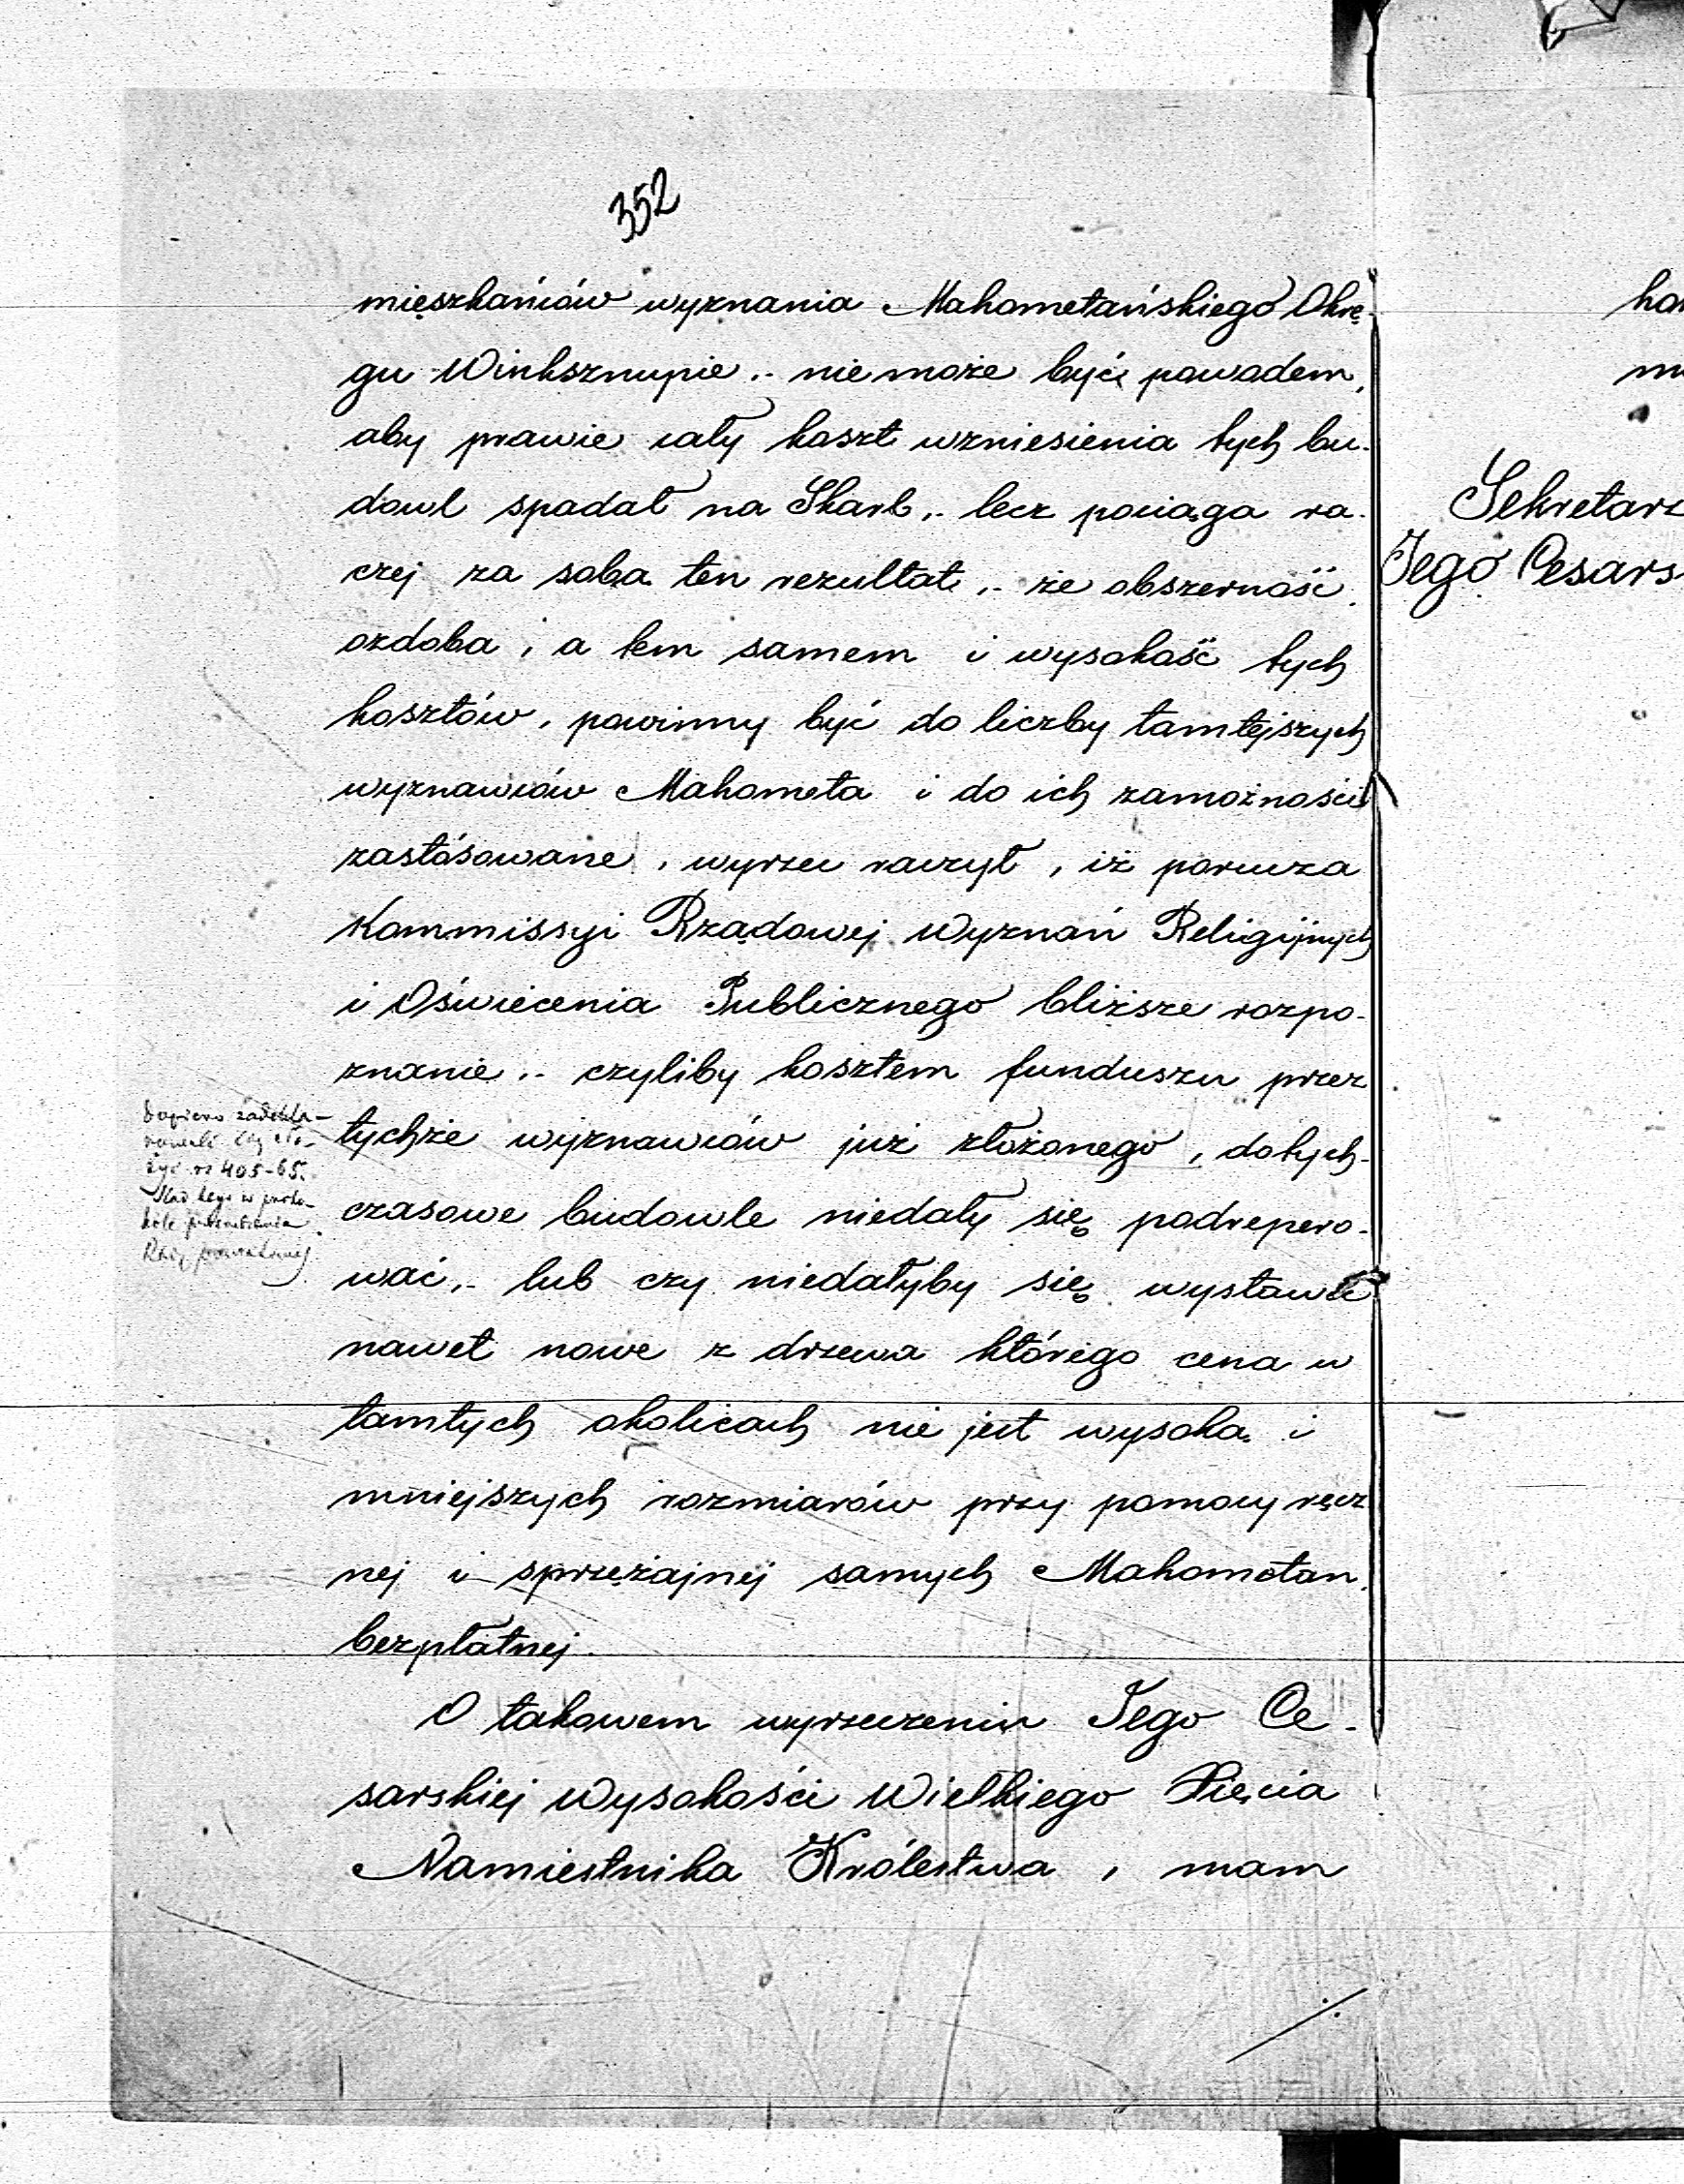 352
mięszkańców wyznania Mahometańskiego Okrę-
gu Winksznupie, nie może być powodem,
aby prawie cały koszt wzniesienia tych bu-
dowl spadał na Skarb, lecz pociąga ra-
czej za sobą ten rezultat, że obszerność,
ozdoba, a tem samem i wysokość tych
kosztów, powinny być do liczby tamtejszych
wyznawców Mahometa i do ich zamożności
zastósowane, wyrzec raczył, iż porucza
Kommissyi Rządowej Wyznań Religijnych
i Oświecenia Publicznego bliższe rozpo-
znanie, czyliby kosztem funduszu przez
tychże wyznawców już złożonego, dotych-
czasowe budowle niedały się podrepero-
wać, lub czy niedałyby się wystawić
nawet nowe z drzewa którego cena w
tamtych okolicach nie jest wysoka i
mniejszych rozmiarów przy pomocy ręcz
nej i sprzężajnej samych Mahometan,
bezpłatnej.
O takowem wyrzeczeniu Jego Ce-
sarskiej Wysokości Wielkiego Xięcia
Namiestnika Królestwa, mam
Dopiero zadekla-
rowali
żyć rs 405-65.
Sekretarz
Jego Cesars